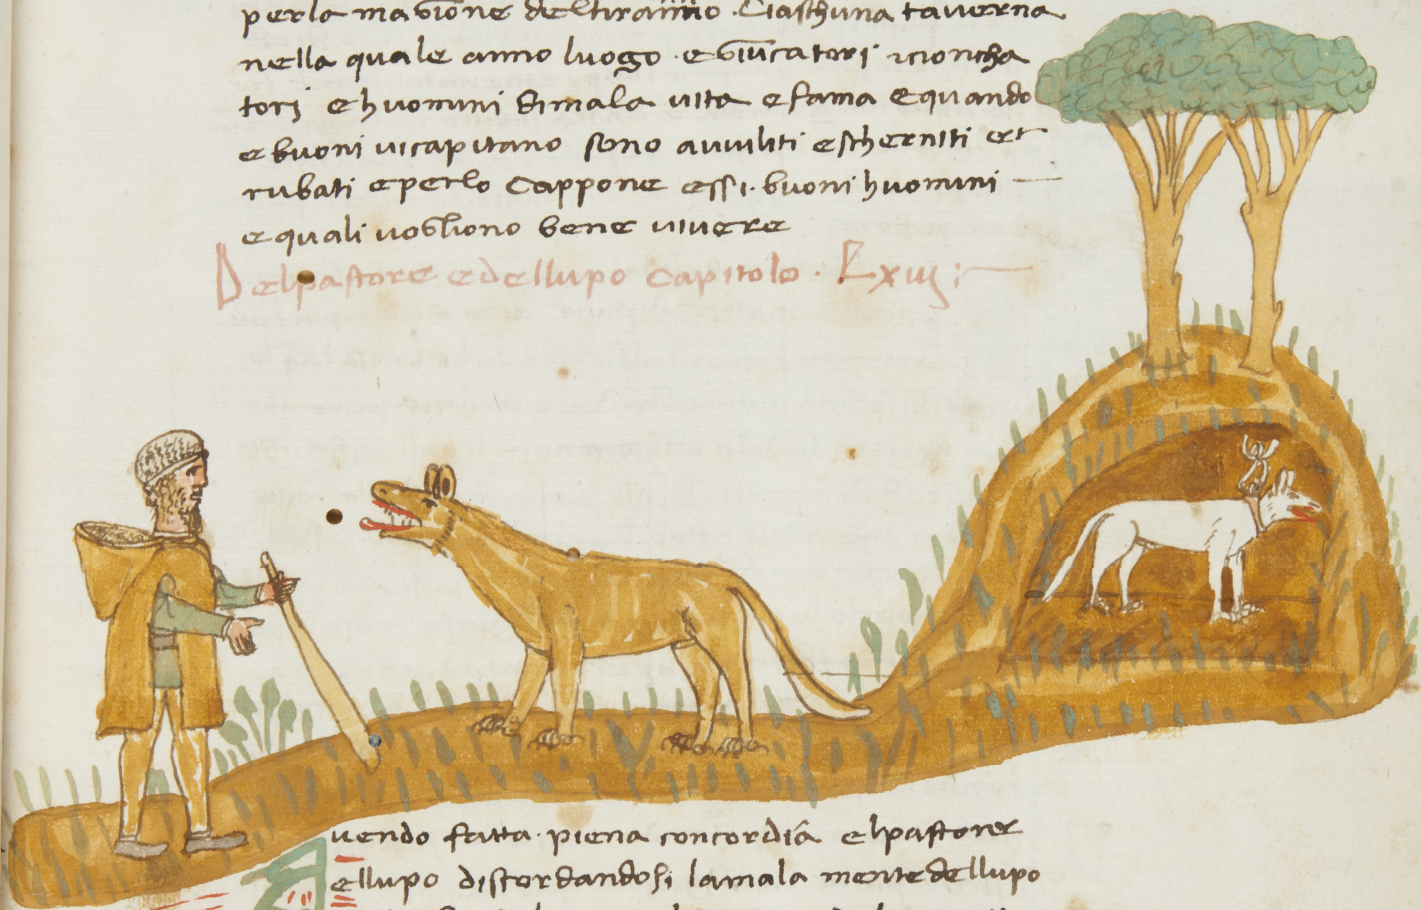 per la magione del tiranno . Ciaschuna taverna
nella quale anno luogo . e giucatori icioncha
tori e huomini di mala vita e fama e quando
e buoni vi capitano sono avviliti e scherniti et
rubati e per lo cappone essi . buoni huomini
e quali vogliono bene vivere
Del pastore e del lupo capitolo . Lxiiij :
uendo fatta . piena concordia el pastore
el lupo discordandosi la mala mente del lupo